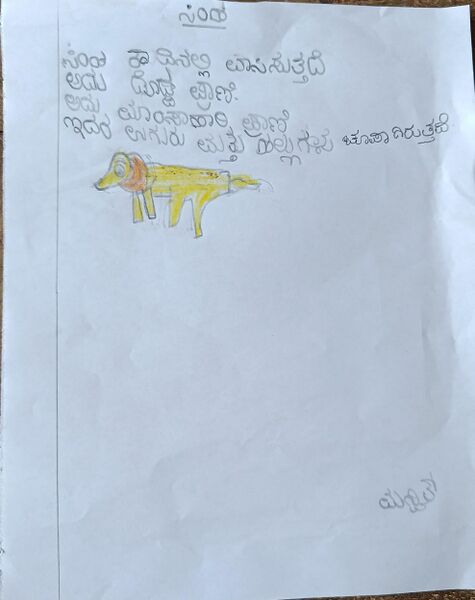 ಸಿಂಹ
ಸಿಂಹ ಕಾಡಿನಲ್ಲಿ ವಾಸಿಸುತ್ತದೆ
ಅದು ದೊಡ್ಡ ಪ್ರಾಣಿ.
ಅದು ಮಾಂಸಾಹಾರಿ ಪ್ರಾಣಿ
ಇದರ ಉಗುರು ಮತ್ತು ಹಲ್ಲುಗಳು ಚೂಪಾಗಿರುತ್ತದೆ.